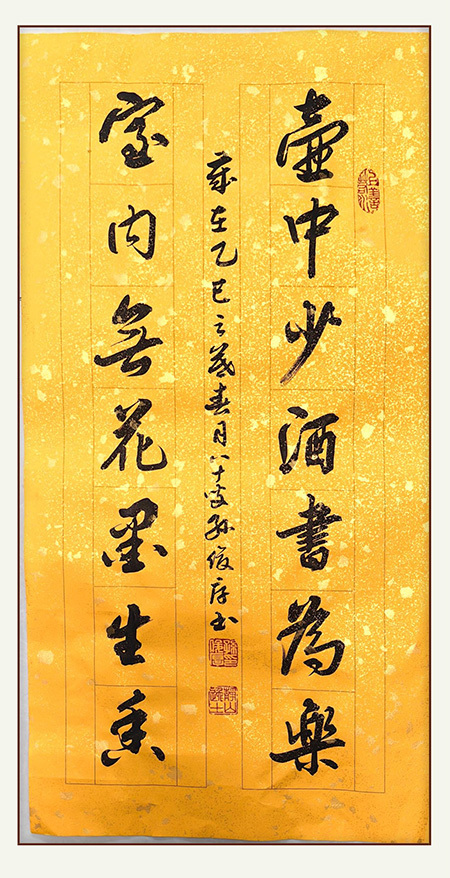 壺中少酒書為樂
室內無花墨生香
歲在乙巳之歲春月八十叟孫俊彦書